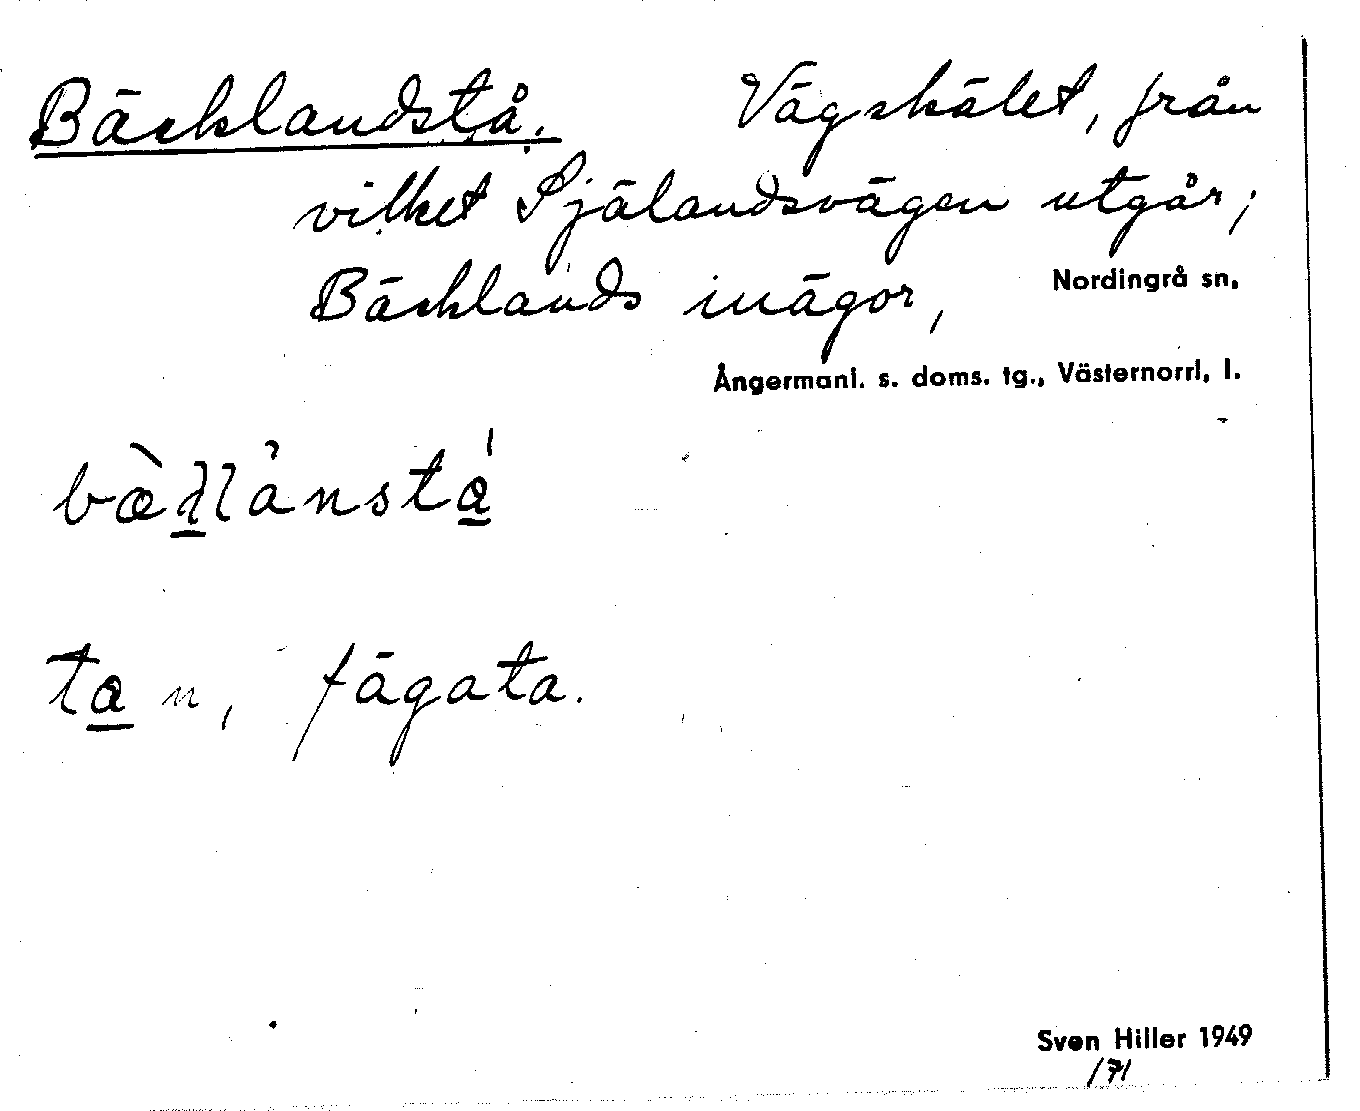 Bäcklandstå. Vägskälet, från
vilket Själandsvägen utgår;
Bäcklands inägor, Nordingrå sn,
Ångermanl. s. doms. tg., Västernorrl. l.
ta n, fägata.
Sven Hiller 1949
/71